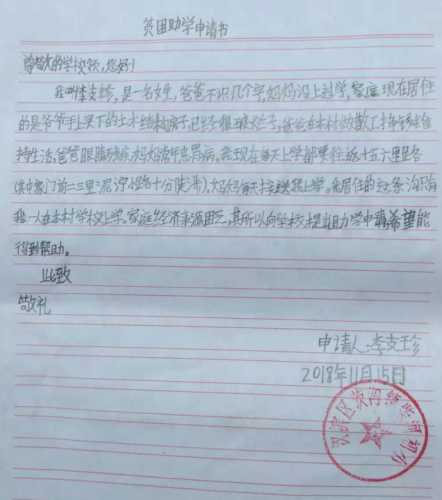 贫困助学申请书
尊敬的学校领,您好!
我叫李支珍,是一名女生,爸爸不识几个字,妈妈没上过学,家庭现在居住
的是爷爷手上买下的土木结构房子,已经很破烂了,爸爸在本村做散工挣钱维
持生活,爸爸眼睛残疾,妈妈常年患胃病。我现在每天上学都要往返十五六里路
(其中家门前二三里泥泞小路十分陡),妈妈每天接送我上学。我居住的这条沟只有
我一人在本村学校上学。家庭经济来源困乏,所以向学校提出助学申请希望能
得到帮助。
此致
敬礼
申请人:李支珍
2018年11月15日
汉滨区茨沟镇